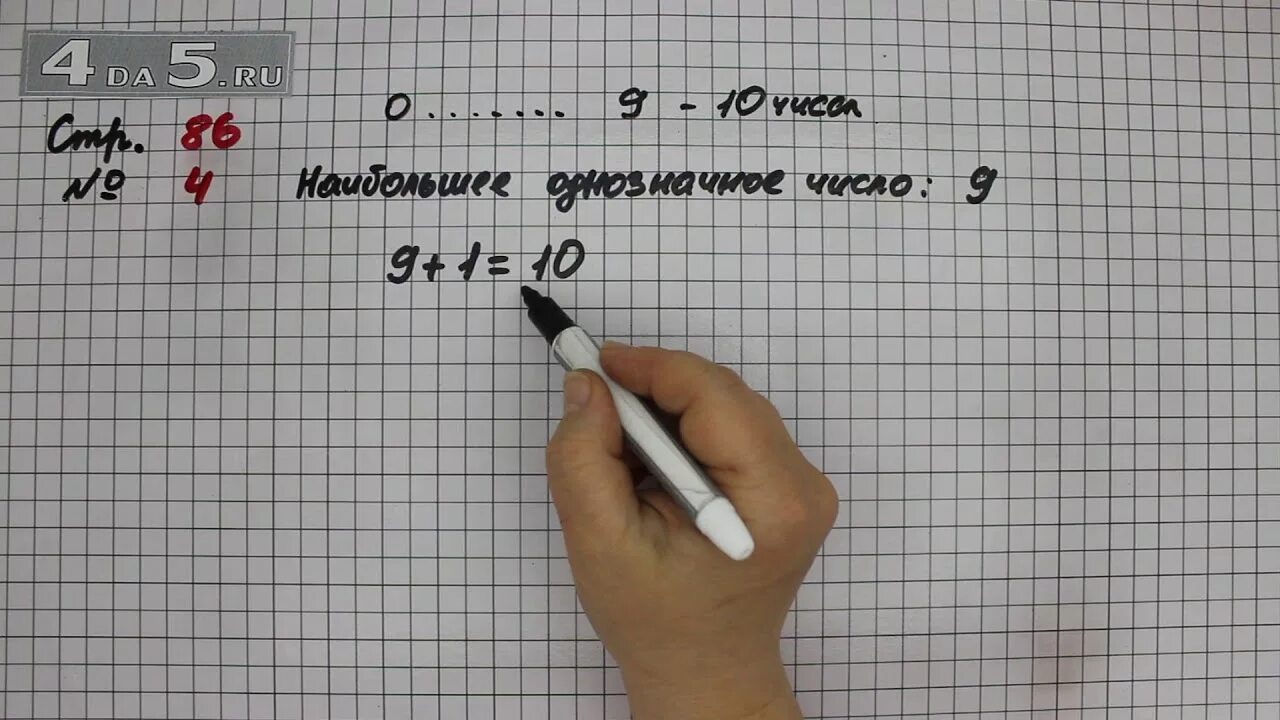 4DA5.RU
0....... 9 - 10 чисел
Стр. 86
№ 4 Наибольшее однозначное число: 9
9+1= 10